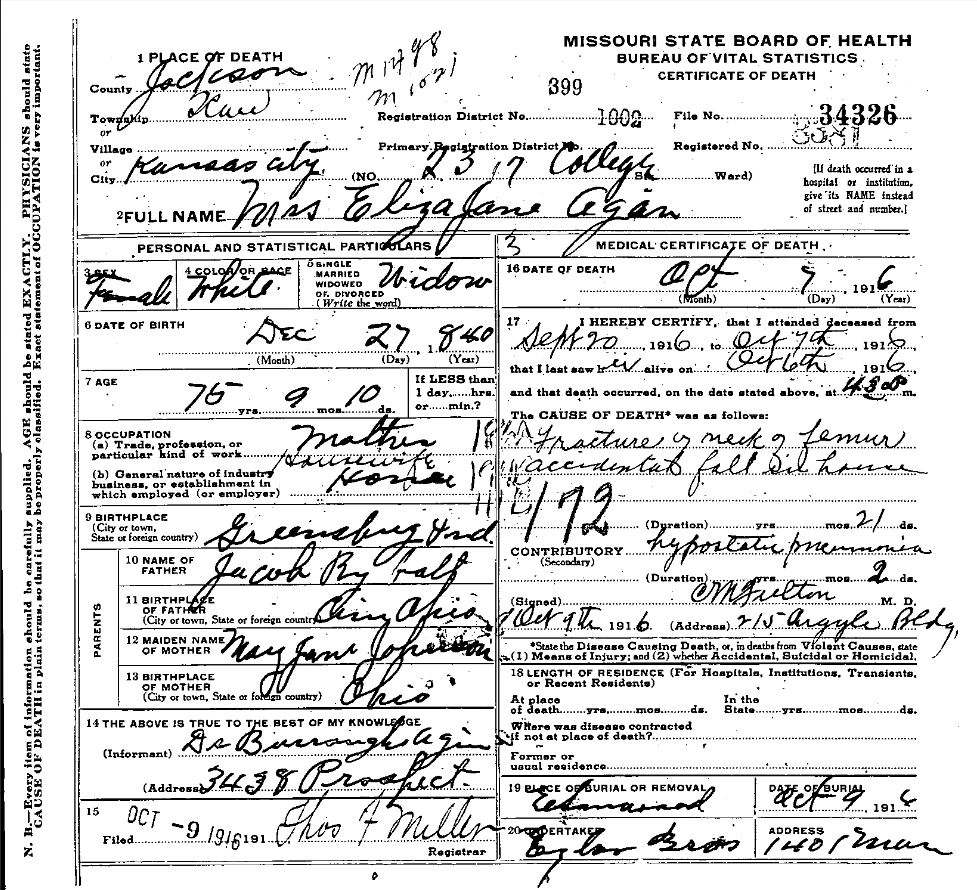 MISSOURI STATE BOARD OF HEALTH
BUREAU OF VITAL STATISTICS
CERTIFICATE OF DEATH
1 PLACE OF DEATH
County Jackson
M 1498
M 1021
399
Township Kaw
Registration District No. 1002
File No. 34326
or
Village
Primary Registration District No.
Registered No.
or
City Kansas City (NO. 2317 College St. Ward)
[If death occurred in a hospital or institution, give its NAME instead of street and number.]
2 FULL NAME Mrs Eliza Jane Agan
PERSONAL AND STATISTICAL PARTICULARS
3 SEX Female
4 COLOR OR RACE White
5 SINGLE MARRIED WIDOWED OR DIVORCED (Write the word) Widow
6 DATE OF BIRTH
Dec 27 1840
(Month) (Day) (Year)
7 AGE
75 yrs. 9 mos. 10 ds.
If LESS than 1 day,....hrs. or.....min.?
8 OCCUPATION
(a) Trade, profession, or particular kind of work Mother
Housewife
(b) General nature of industry business, or establishment in which employed (or employer) Home
9 BIRTHPLACE
(City or town, State or foreign country) Greensburg Ind.
PARENTS
10 NAME OF FATHER Jacob
11 BIRTHPLACE OF FATHER
(City or town, State or foreign country) Cin Ohio
12 MAIDEN NAME OF MOTHER Mary Jane
13 BIRTHPLACE OF MOTHER
(City or town, State or foreign country) Ohio
14 THE ABOVE IS TRUE TO THE BEST OF MY KNOWLEDGE
(Informant) Dr Burroughs Agin
(Address) 3438 Prospect.
15
Filed OCT -9 1916 191 Thos F Miller
Registrar
3 MEDICAL CERTIFICATE OF DEATH
16 DATE OF DEATH
Oct 7 1916
(Month) (Day) (Year)
17 I HEREBY CERTIFY, that I attended deceased from
Sept 20, 1916, to Oct 7th, 1916,
that I last saw her alive on Oct 6th, 1916
and that death occurred, on the date stated above, at 430 P m.
The CAUSE OF DEATH* was as follows:
Fracture of neck of femur
accidental fall in house
172
(Duration) yrs. mos. 21 ds.
CONTRIBUTORY hypostatic pneumonia
(Secondary)
(Duration) yrs. mos. 2 ds.
(Signed) CM Fulton M. D.
Oct 9th 1916 (Address) 215 Argyle Bldg,
*State the Disease Causing Death, or, in deaths from Violent Causes, state
(1) Means of Injury; and (2) whether Accidental, Suicidal or Homicidal.
18 LENGTH OF RESIDENCE (For Hospitals, Institutions, Transients, or Recent Residents)
At place of death yrs. mos. ds. In the State yrs. mos. ds.
Where was disease contracted
if not at place of death?
Former or
usual residence
19 PLACE OF BURIAL OR REMOVAL
Elmwood
DATE OF BURIAL
Oct 9 1916
20 UNDERTAKER
Eylar Bros
ADDRESS
1401 Main
N. B.—Every item of information should be carefully supplied. AGE should be stated EXACTLY. PHYSICIANS should state
CAUSE OF DEATH in plain terms, so that it may be properly classified. Exact statement of OCCUPATION is very important.